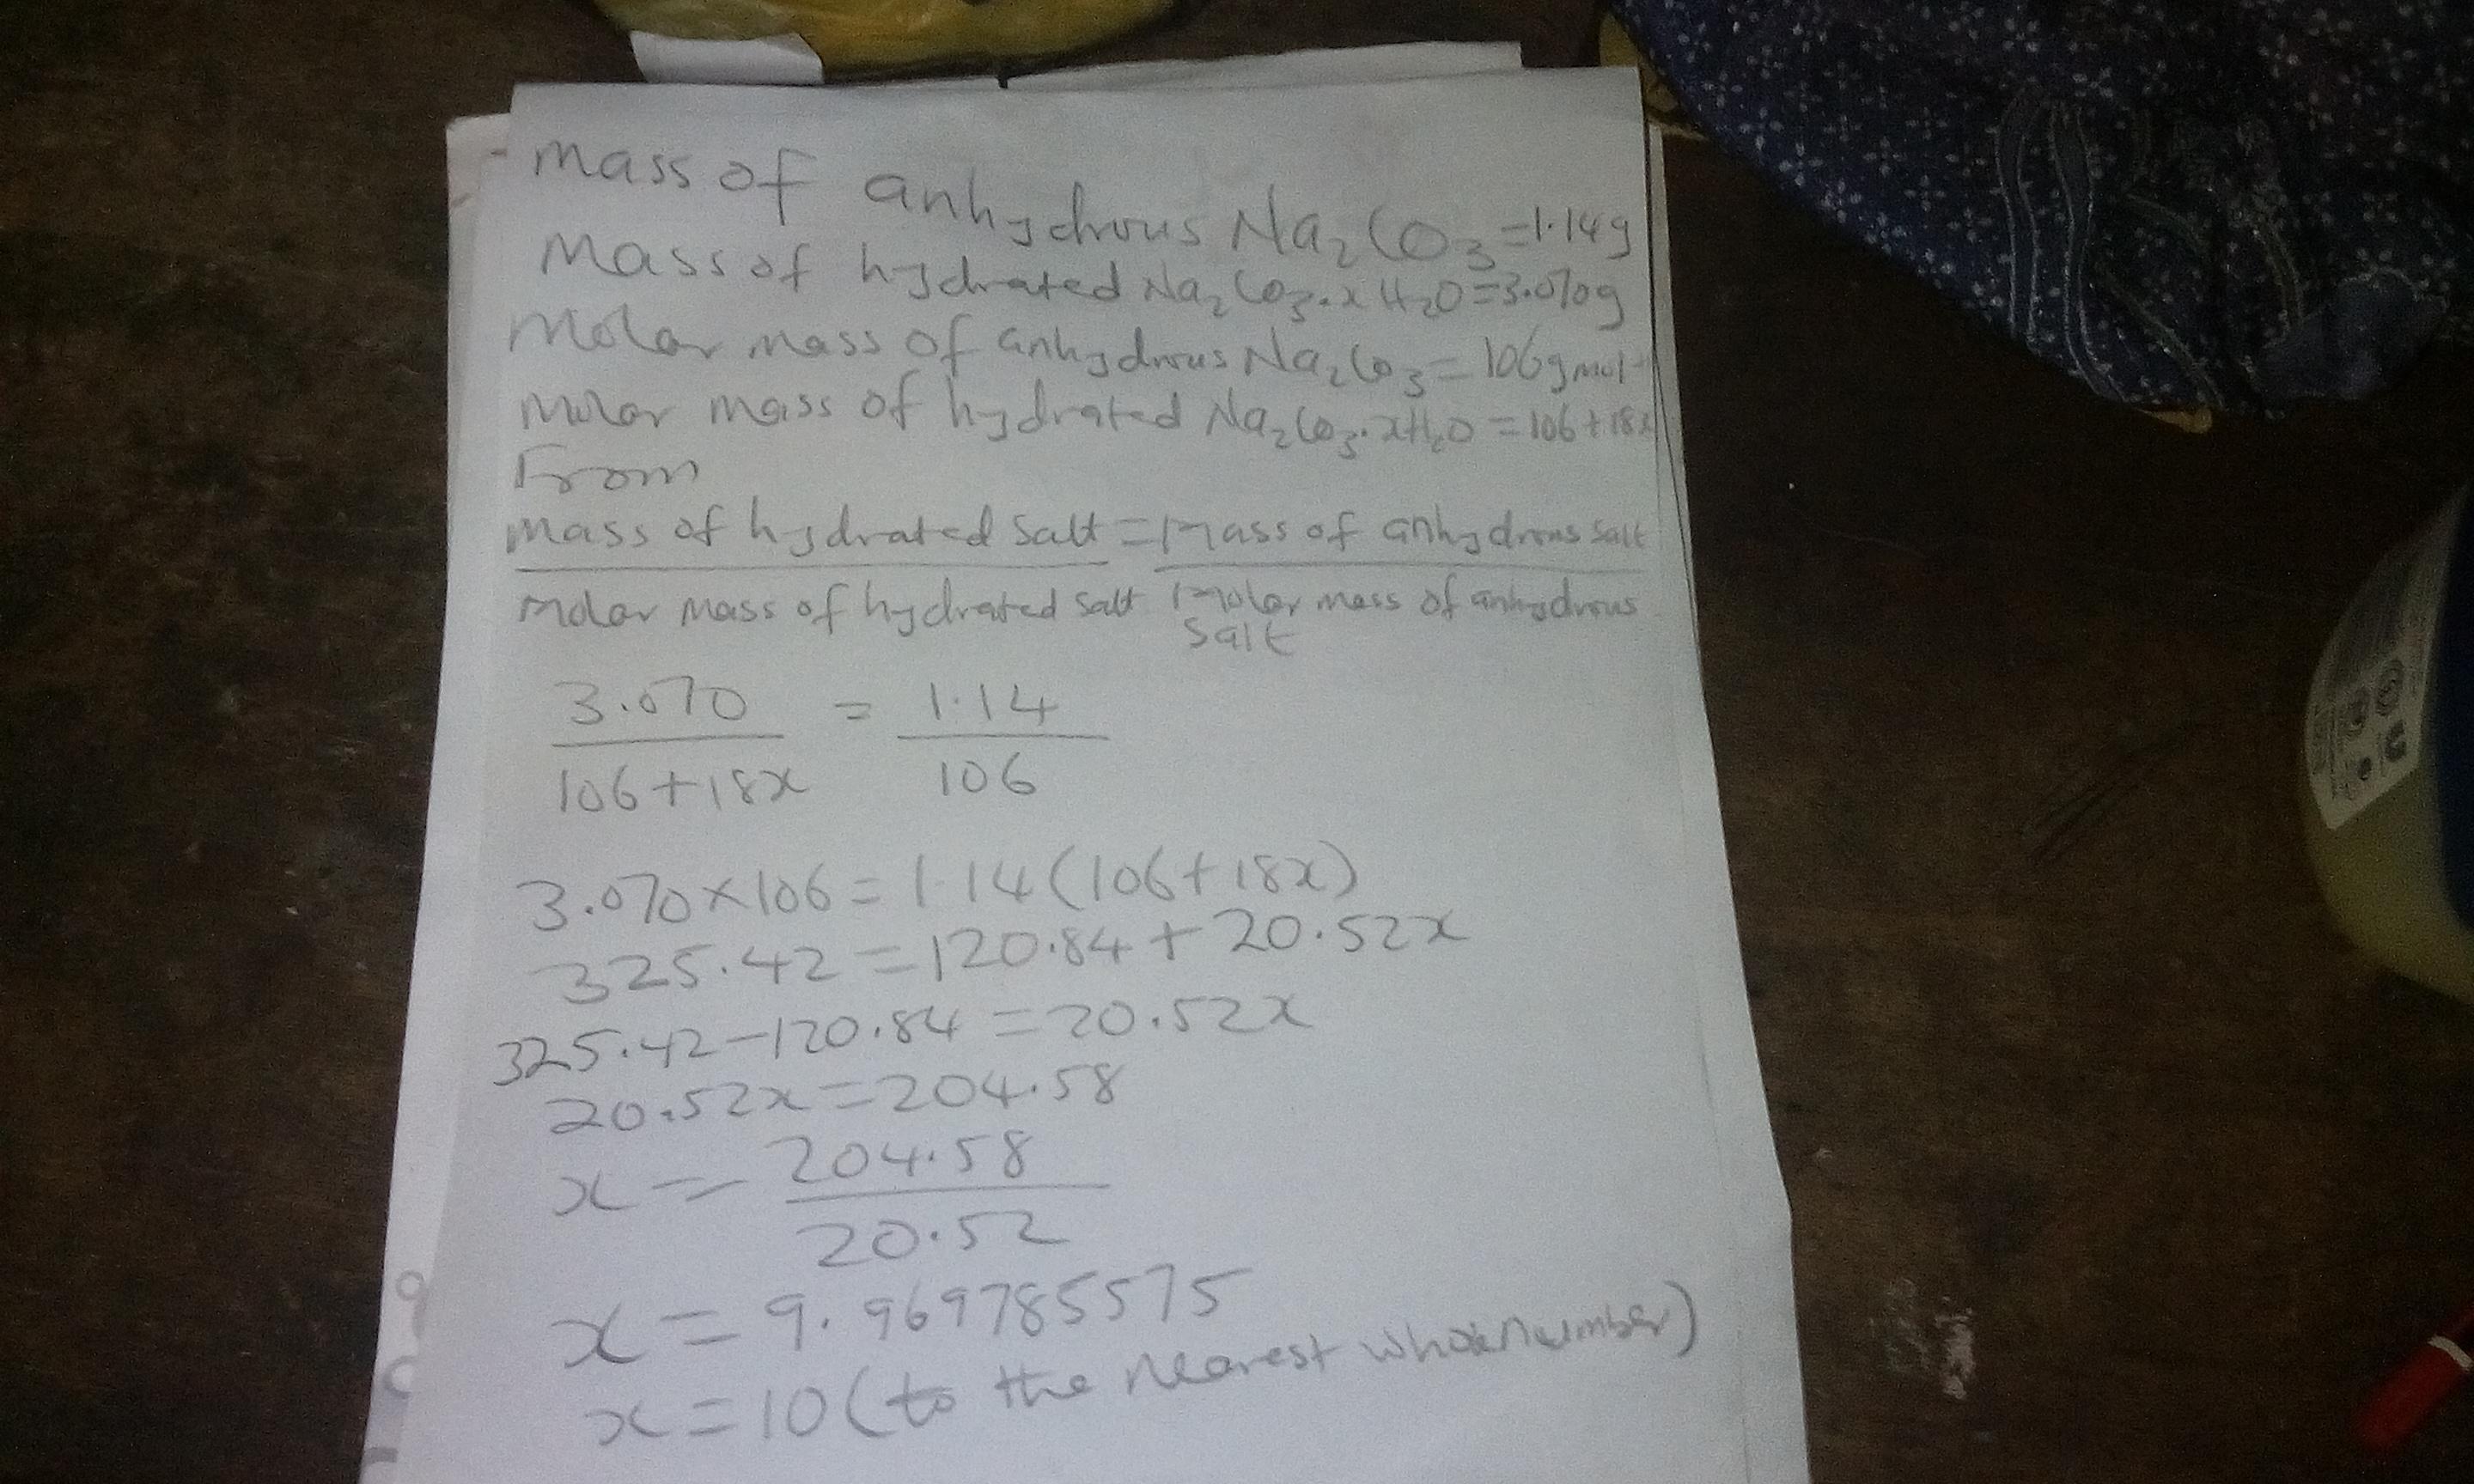 - Mass of anhydrous Na₂CO₃ = 1.14g
Mass of hydrated Na₂CO₃.xH₂O = 3.070g
Molar mass of anhydrous Na₂CO₃ = 106gmol⁻
Molar mass of hydrated Na₂CO₃.xH₂O = 106 + 18x
From
Mass of hydrated salt = Mass of anhydrous salt
Molar mass of hydrated salt Molar mass of anhydrous
salt
3.070 = 1.14
106+18x 106
3.070×106 = 1.14(106+18x)
325.42 = 120.84 + 20.52x
325.42-120.84 = 20.52x
20.52x = 204.58
x = 204.58
20.52
x = 9.969785575
x = 10 (to the nearest whole number)